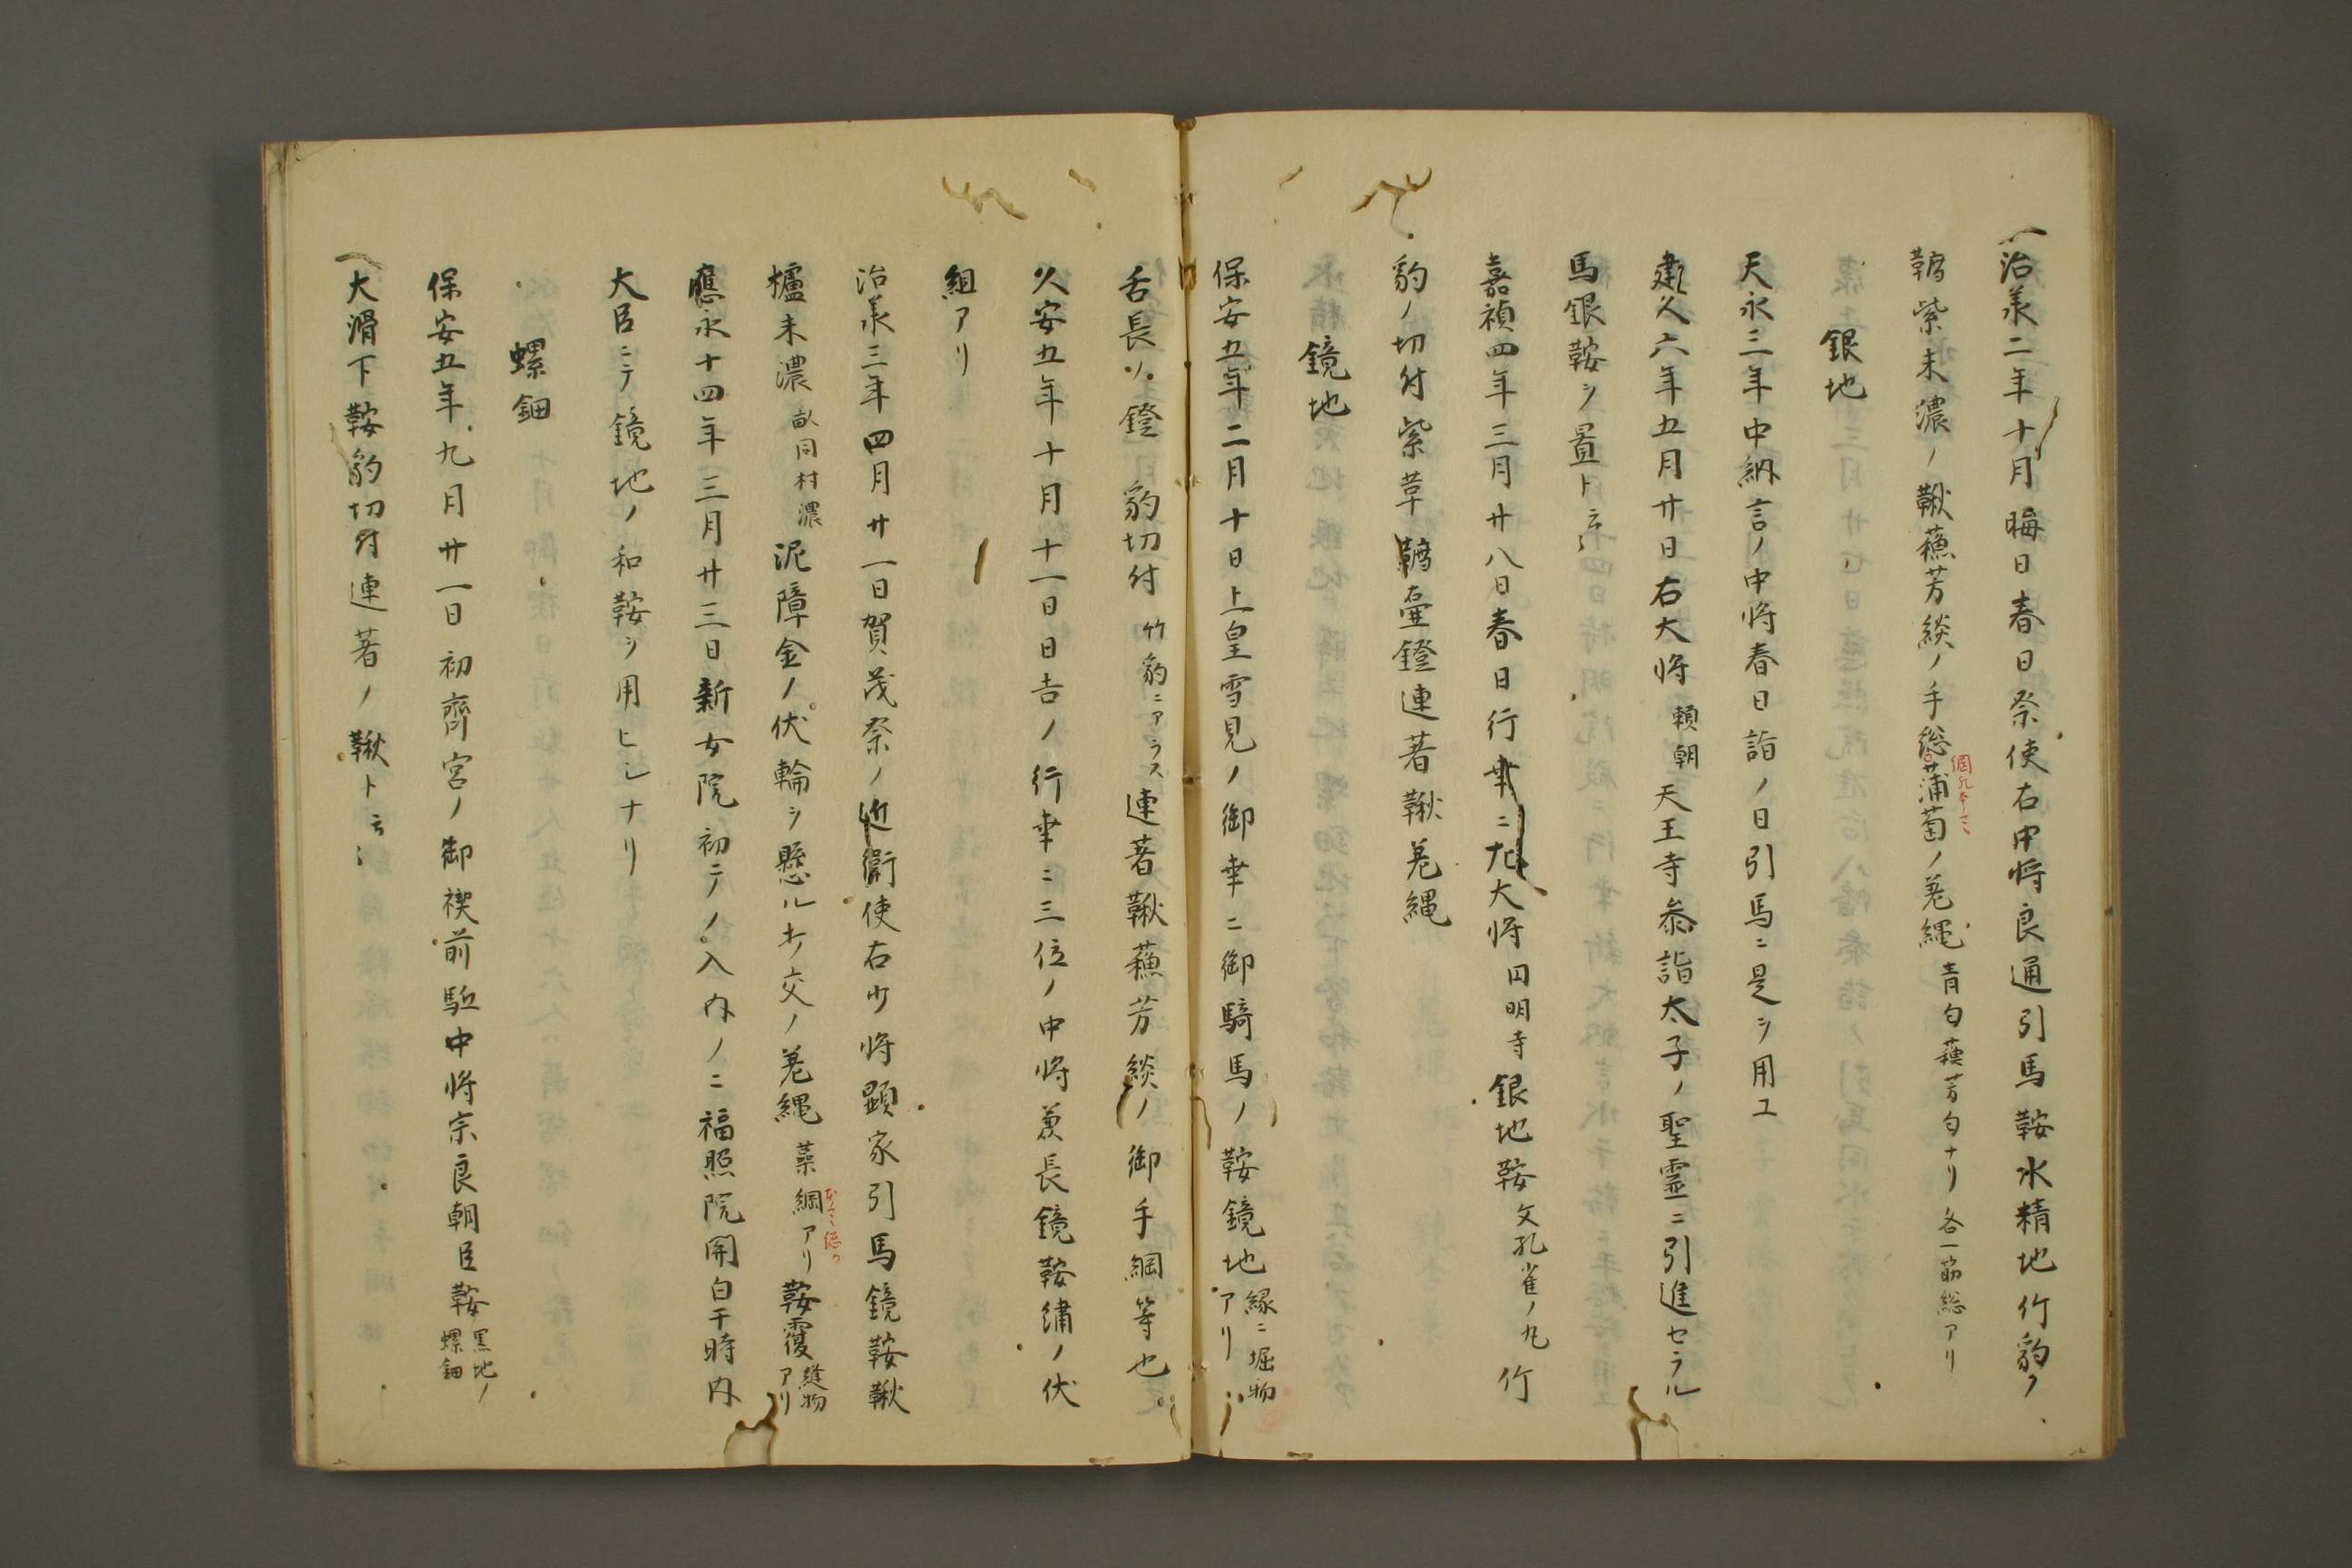 治承二年十月晦日春日祭使右中将良通引馬鞍水精地竹豹ノ
韉紫末濃ノ鞦蘓芳緂ノ手総蒲萄ノ差縄 青匂蘓芳匂ナリ各一筋総アリ
銀地
天永三年中納言ノ中将春日詣ノ日引馬ニ是ヲ用エ
建久六年五月廿日右大将 頼朝 天王寺参詣太子ノ聖霊ニ引進セラル
馬銀鞍ヲ置ト云〻
嘉禎四年三月廿八日春日行幸ニ九大将 円明寺 銀地鞍 文孔雀ノ丸 竹
豹ノ切付紫草韉壷鐙連著鞦差縄
鏡地
保安五年二月十日上皇雪見ノ御幸ニ御騎馬ノ鞍鏡地 縁ニ堀物アリ
舌長ソ鐙豹切付 竹豹ニアラス 連著鞦蘓芳緂ノ御手綱等也
久安五年十月十一日日吉ノ行幸ニ三位ノ中将兼長鏡鞍繍ノ伏
組アリ
治承三年四月廿一日賀茂祭ノ近衛使右少将顕家引馬鏡鞍鞦
櫨末濃 畝同村濃 泥障金ノ伏輪ヲ懸ル木交ノ差縄 藁綱アリ 鞍覆 縫物アリ
應永十四年三月廿三日新女院初テノ入内ノニ福照院関白于時内
大臣ニテ鏡地ノ和鞍ヲ用ヒシナリ
螺鈿
保安五年九月廿一日初齊宮ノ御禊前駈中将宗良朝臣鞍 黒地ノ螺鈿
大滑下鞍豹切付連著ノ鞦ト云〻